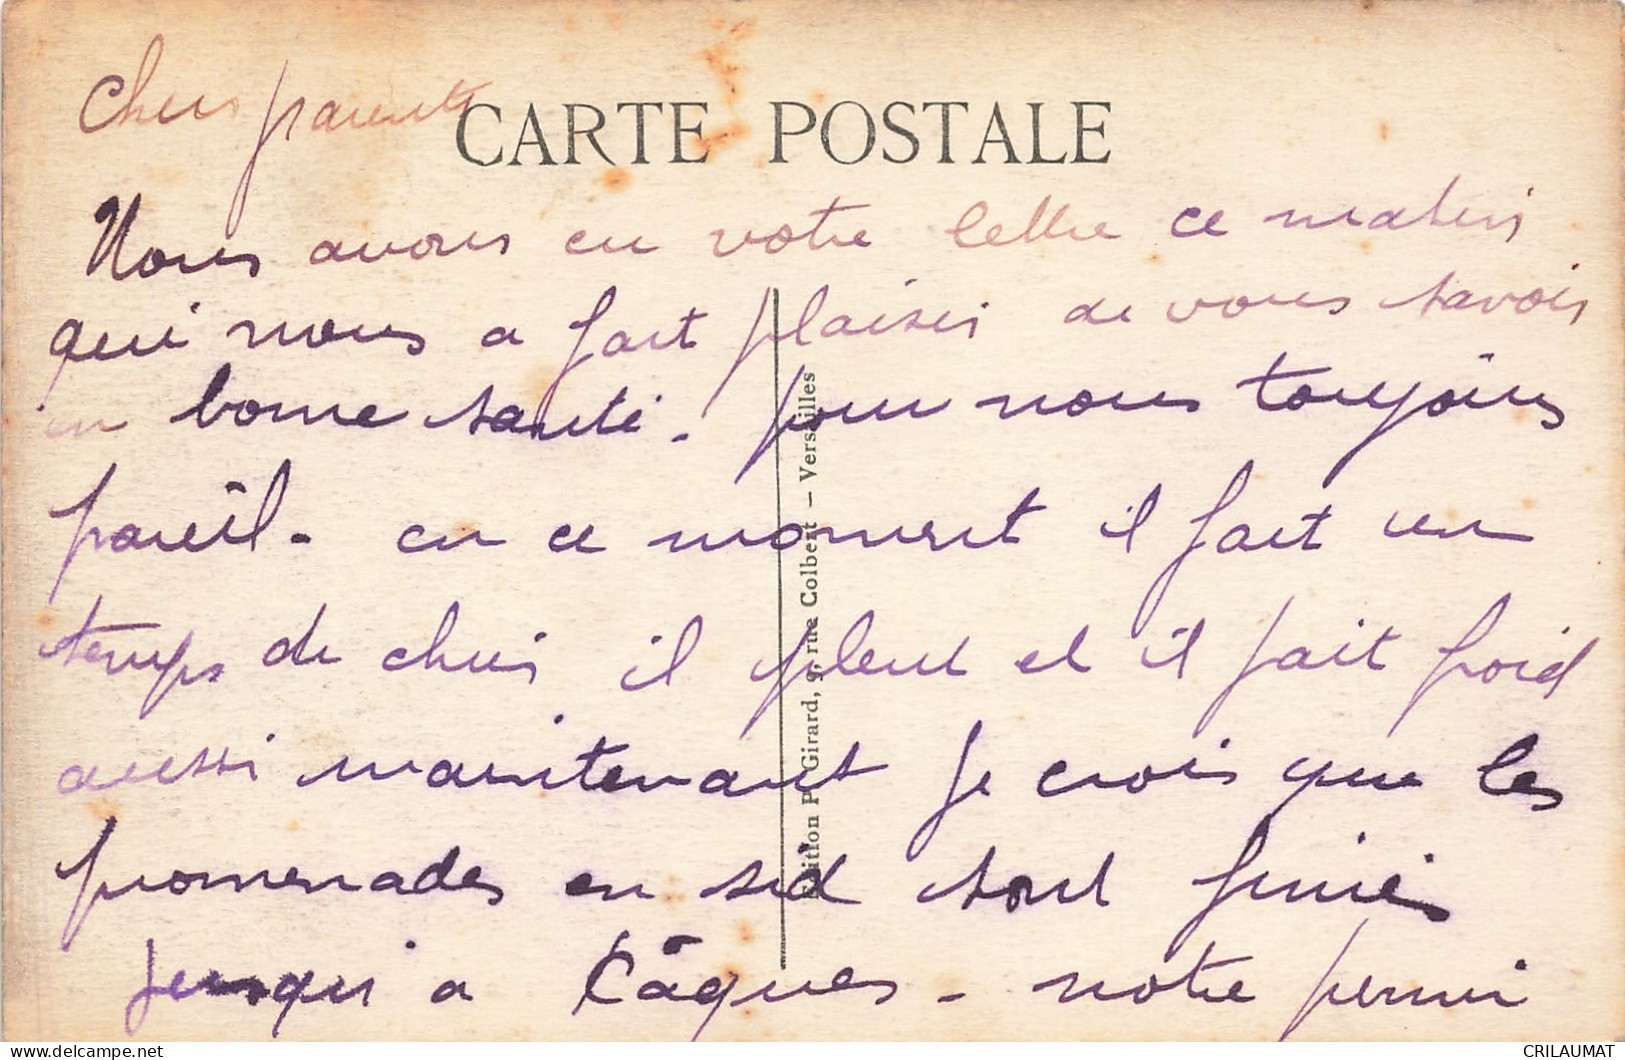 Chers parents
CARTE POSTALE
Nous avons eu votre lettre ce matin
qui nous a fait plaisir de vous savoir
en bonne santé. pour nous toujours
pareil. en ce moment il fait un
temps de chien il pleut et il fait froid
aussi maintenant je crois que les
promenades en sid sont finies
jusqu'a Pâques - notre permi
Edition P. Girard, 9, rue Colbert - Versailles
CRILAUMAT